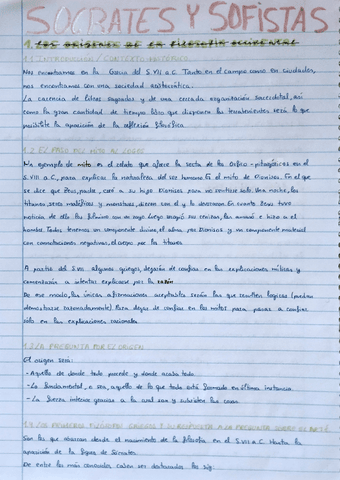 SÓCRATES Y SOFISTAS
1. Los orígenes de la filosofía occidental
1.1 INTRODUCCIÓN / CONTEXTO HISTÓRICO
Nos encontramos en la Grecia del S.VII a.C. Tanto en el campo como en ciudades,
nos encontramos con una sociedad aristocrática.
La carencia de libros sagrados y de una cerrada organización sacerdotal, así
como la gran cantidad de tiempo libre que disponen los terratenientes será lo que
posibilite la aparición de la reflexión filosófica
1.2 EL PASO DEL MITO AL LOGOS
Un ejemplo de mito es el relato que ofrece la secta de los Órfico-pitagóricos en el
S.VII a.C, para explicar la naturaleza del ser humano. Es el mito de Dionisos. En el que
se dice que Zeus, padre, creó a su hijo Dionisos para no sentirse solo. Una noche, los
titanes, seres maléficos y monstruosos, dieron con él y lo devoraron. En cuanto Zeus tuvo
noticia de ello los fulminó con un rayo. Luego recogió sus cenizas, las animó e hizo a el
hombre. Todos tenemos un componente divino, el alma, por Dionisos y un componente material
con connotaciones negativas, el cuerpo por los titanes.
A partir del S.VII algunos griegos, dejarán de confiar en las explicaciones míticas y
comenzarán a intentar explicarse por la razón
De ese modo, las únicas afirmaciones aceptables serán las que resulten lógicas (puedan
demostrarse razonadamente) Para dejar de confiar en los mitos para pasar a confiar
sólo en las explicaciones racionales
1.3 LA PREGUNTA POR EL ORIGEN
El origen será:
- Aquello de donde todo procede y donde acaba todo
- Lo fundamental, o sea, aquello de lo que todo está formado en última instancia
- La fuerza interior gracias a la cual son y subsisten las cosas
1.4 LOS PRIMEROS FILÓSOFOS GRIEGOS Y SU RESPUESTA A LA PREGUNTA SOBRE EL ARJÉ
Son los que abarcan desde el nacimiento de la filosofía en el S.VII a.C. hasta la
aparición de la figura de Sócrates.
De entre los más conocidos, caben ser destacados los sig: